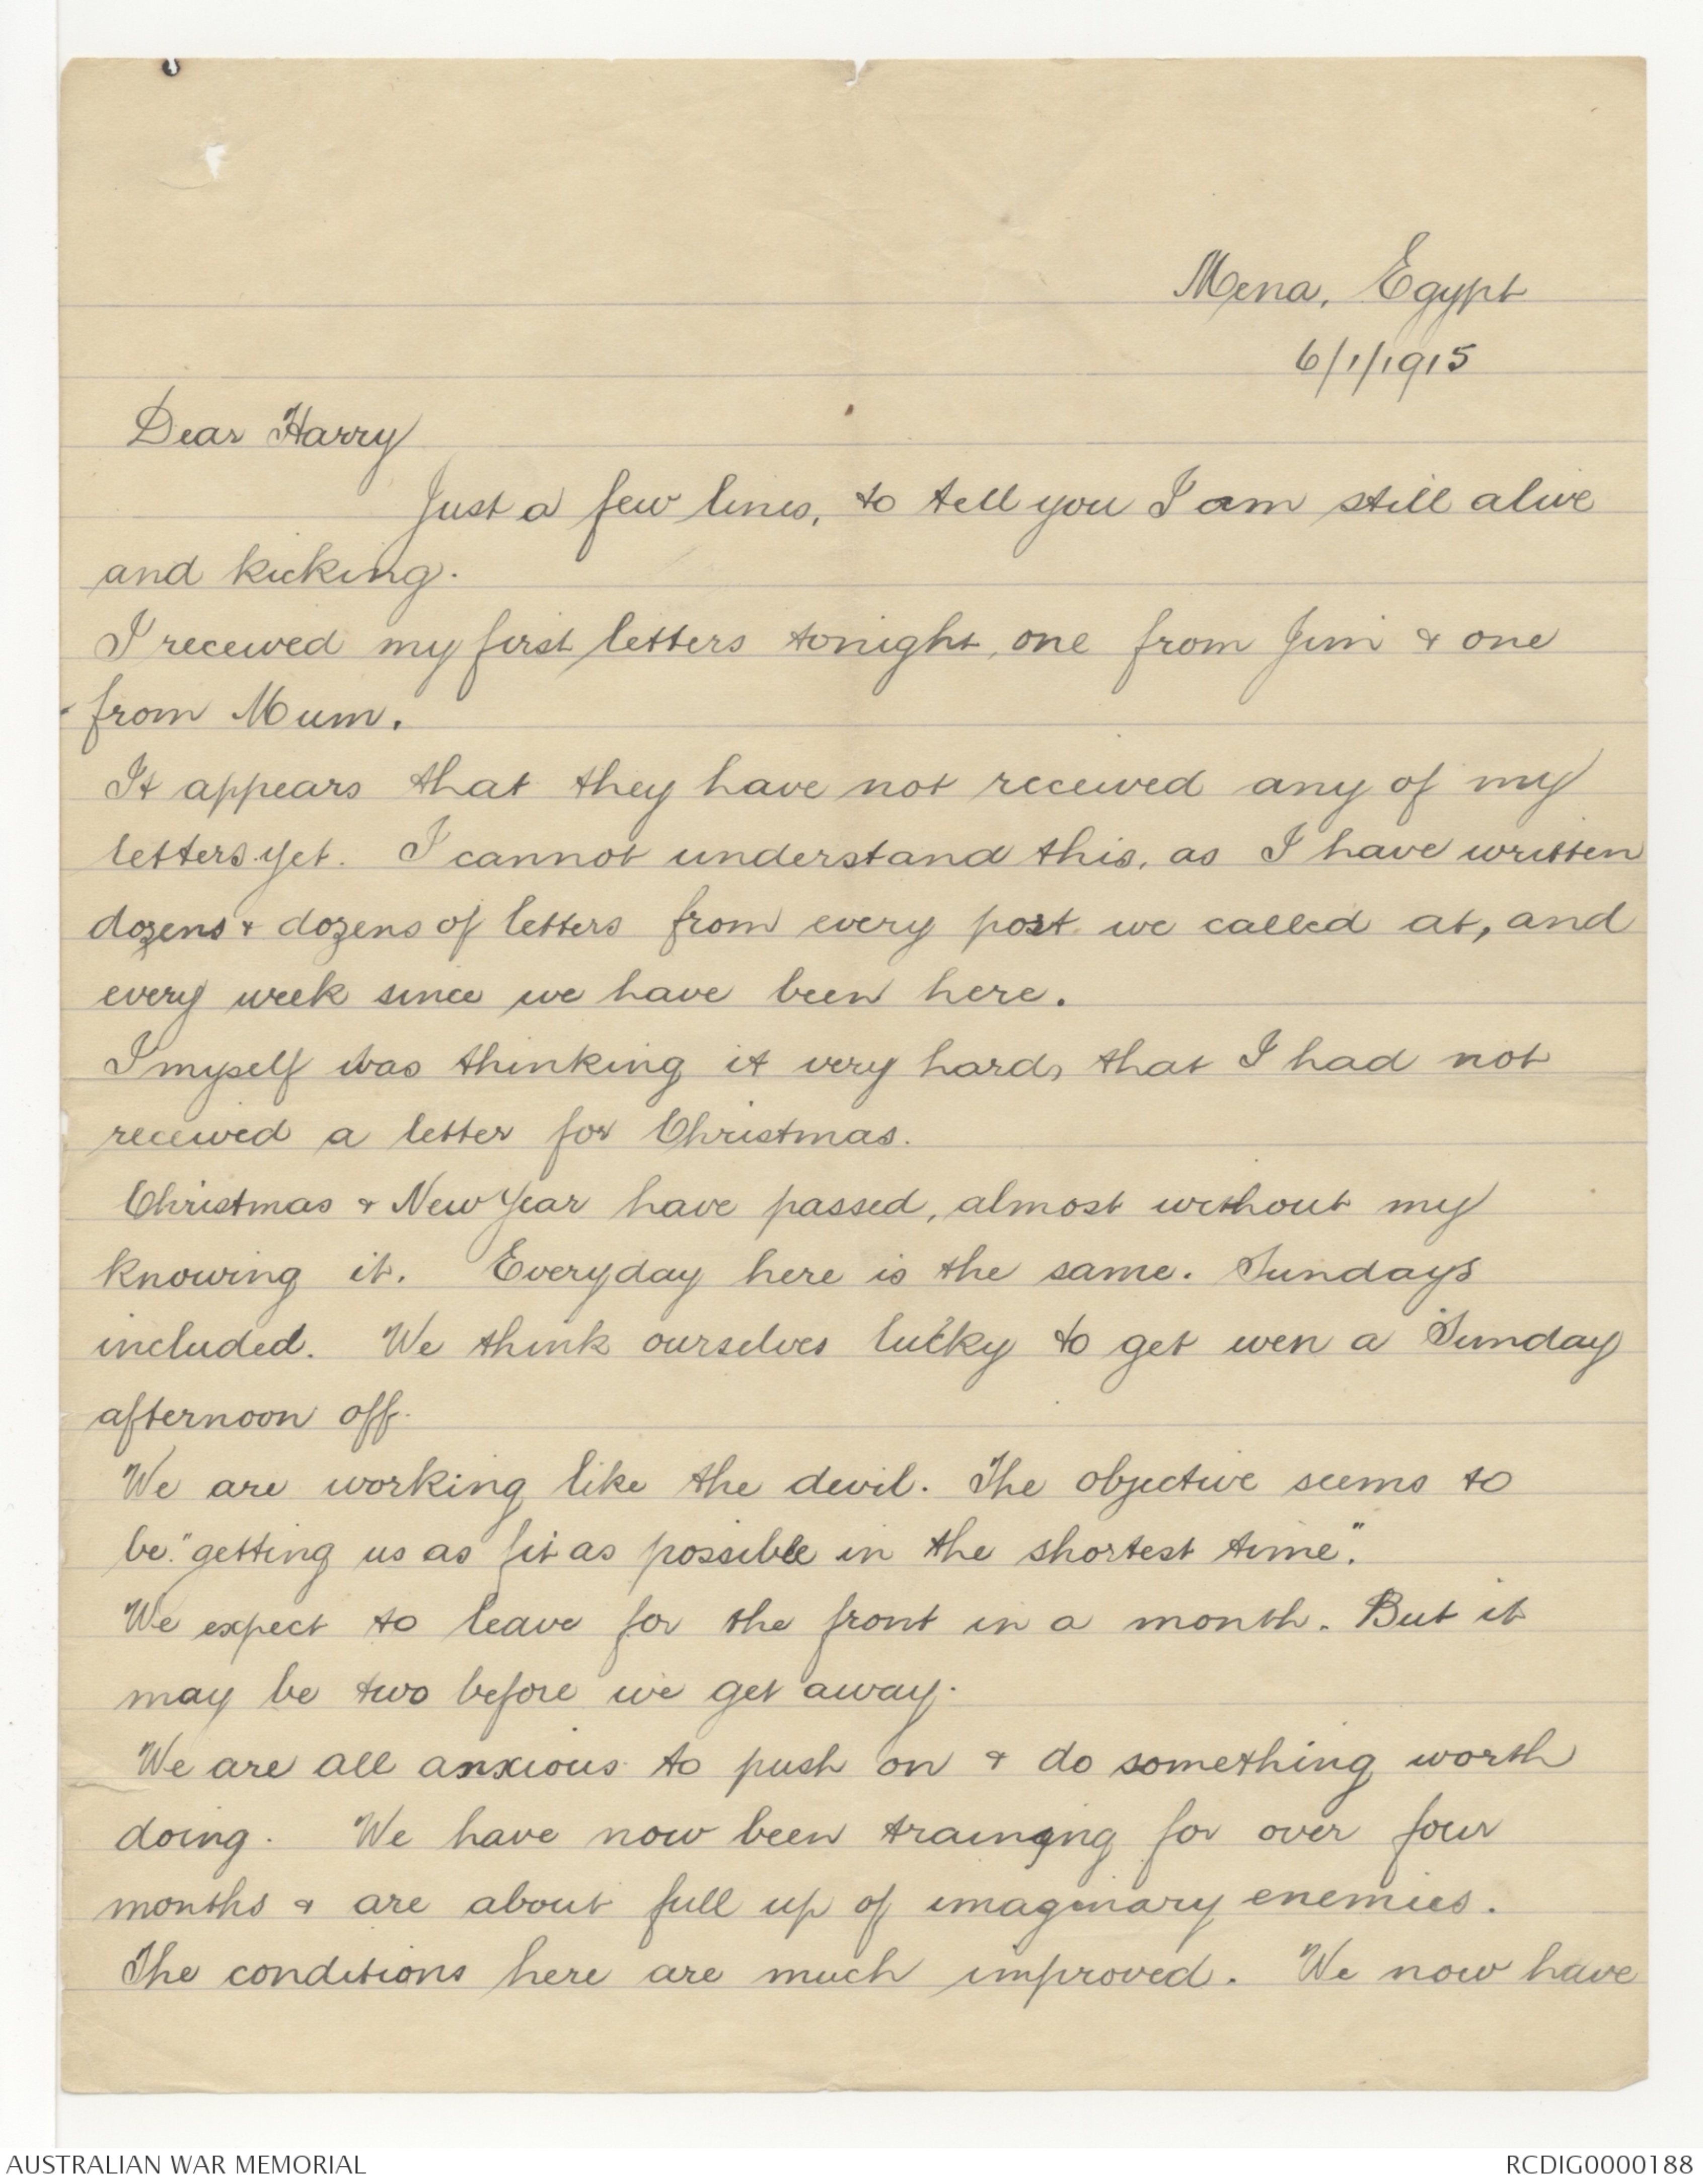 Mena, Egypt
6/1/1915
Dear Harry
Just a few lines, to tell you I am still alive
and kicking.
I received my first letters tonight, one from Jim & one
from Mum.
It appears that they have not received any of my
letters yet. I cannot understand this, as I have written
dozens & dozens of letters from every port we called at, and
every week since we have been here.
I myself was thinking it very hard, that I had not
received a letter for Christmas.
Christmas & New Year have passed, almost without my
knowing it. Everyday here is the same. Sundays
included. We think ourselves lucky to get even a Sunday
afternoon off.
We are working like the devil. The objective seems to
be "getting us as fit as possible in the shortest time".
We expect to leave for the front in a month. But it
may be two before we get away.
We are all anxious to push on & do something worth
doing. We have now been training for over four
months & are about full up of imaginary enemies.
The conditions here are much improved. We now have
AUSTRALIAN WAR MEMORIAL
RCDIG0000188